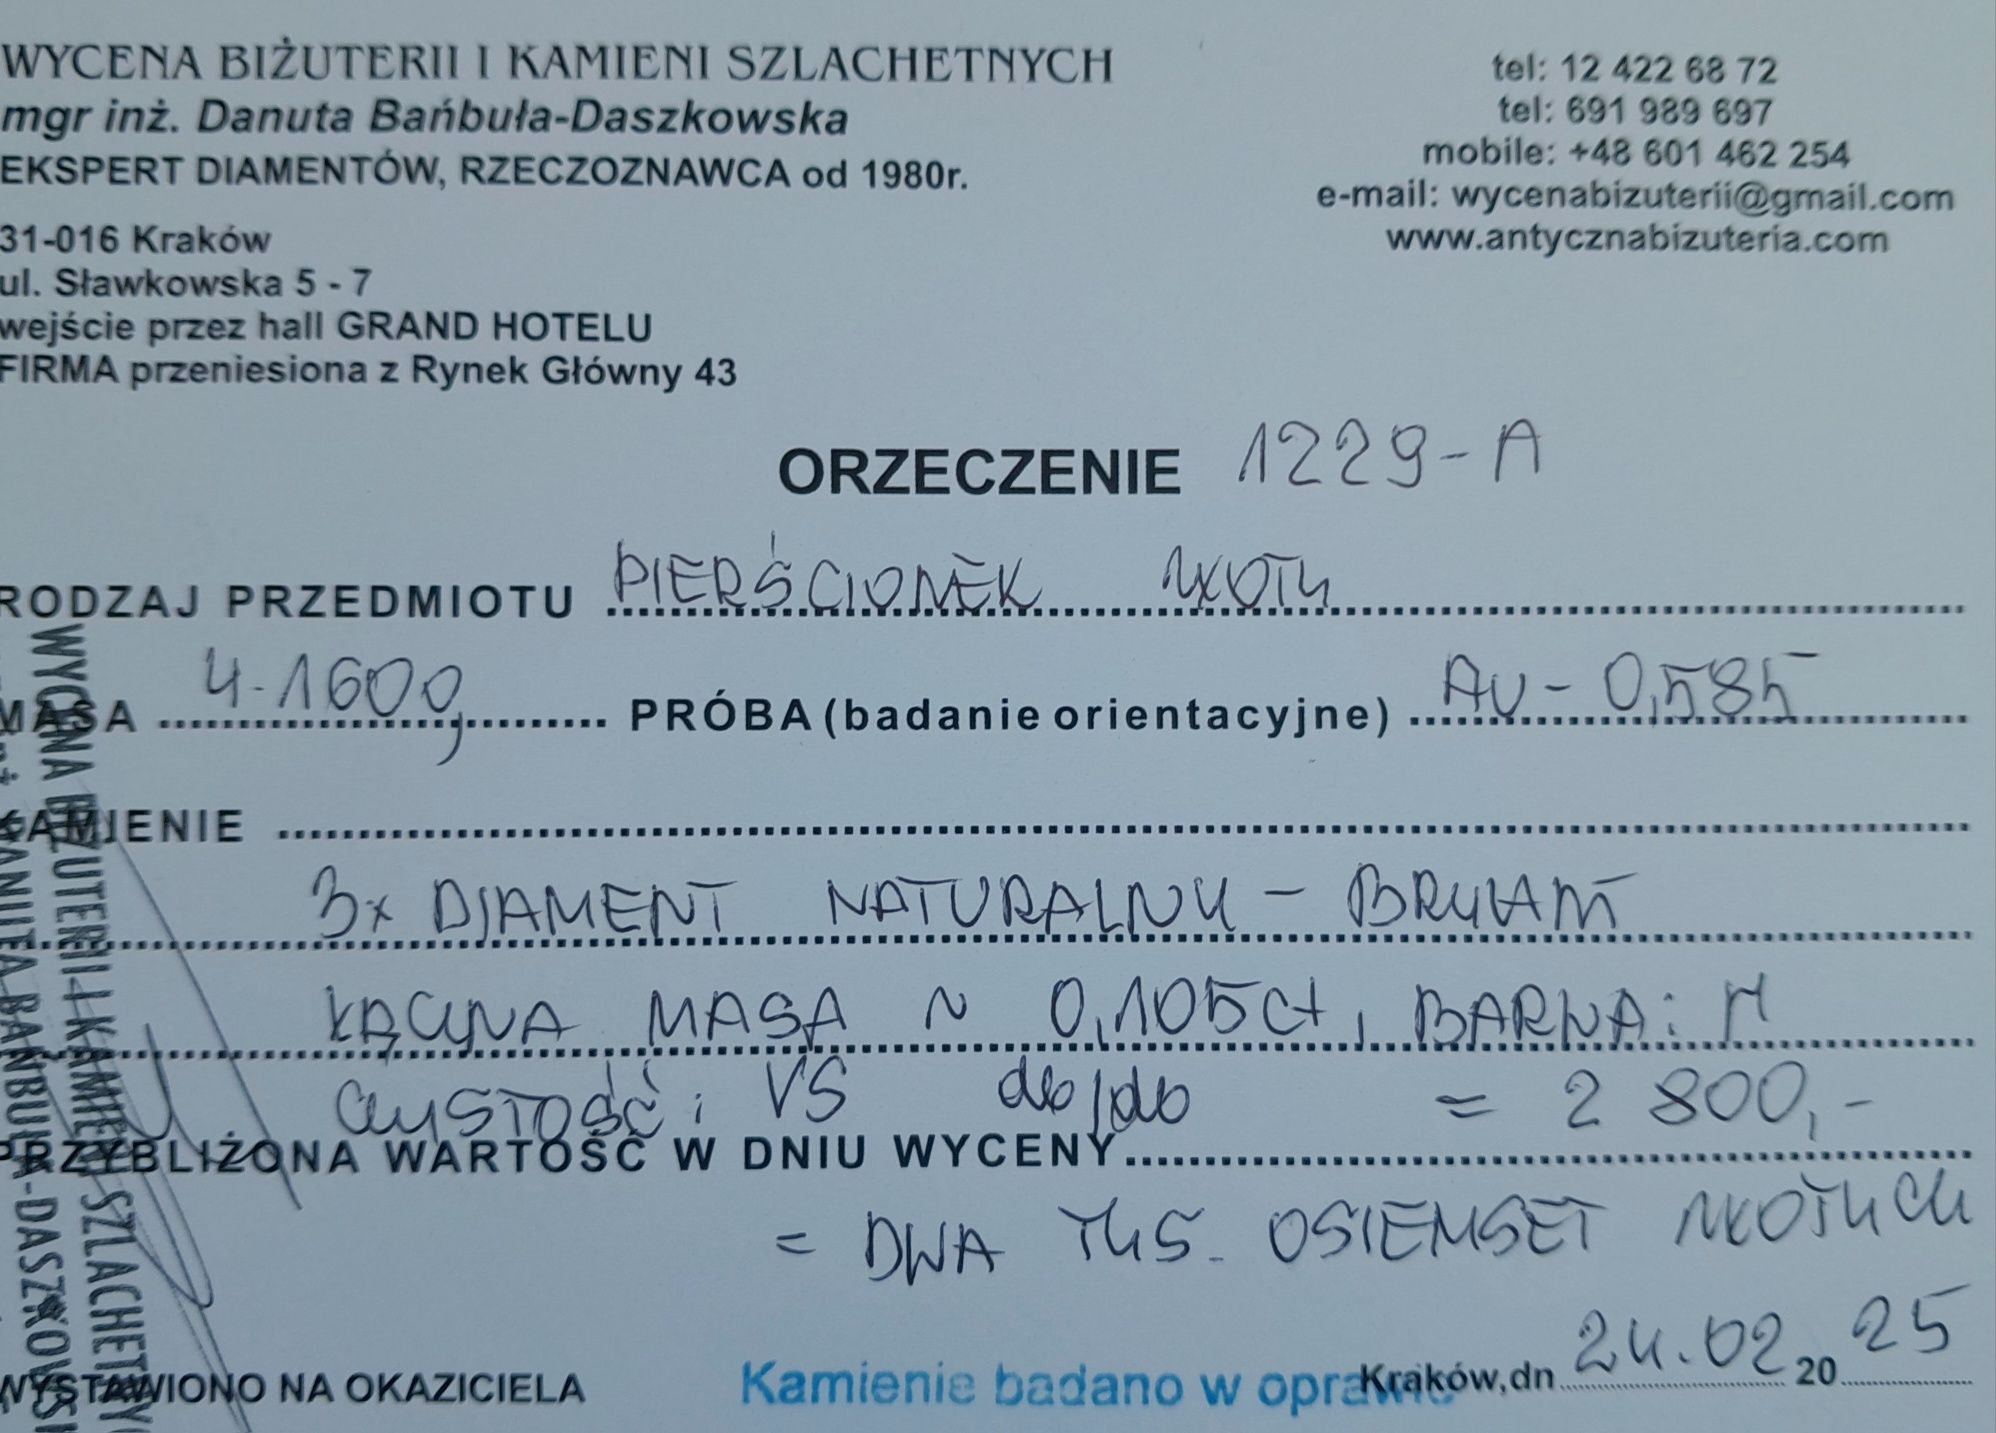 WYCENA BIŻUTERII I KAMIENI SZLACHETNYCH
mgr inż. Danuta Bańbuła-Daszkowska
EKSPERT DIAMENTÓW, RZECZOZNAWCA od 1980r.
31-016 Kraków
ul. Sławkowska 5 - 7
wejście przez hall GRAND HOTELU
FIRMA przeniesiona z Rynek Główny 43
tel: 12 422 68 72
tel: 691 989 697
mobile: +48 601 462 254
e-mail: wycenabizuterii@gmail.com
www.antycznabizuteria.com
ORZECZENIE 1229-A
RODZAJ PRZEDMIOTU PIERŚCIONEK ZŁOTY
MASA 4.1600g PRÓBA (badanie orientacyjne) AU - 0,585
KAMIENIE
3x DIAMENT NATURALNY - BRYLANT
ŁĄCZNA MASA ~ 0,105ct, BARWA: H
CZYSTOŚĆ: VS db/db = 2 800,-
PRZYBLIŻONA WARTOŚĆ W DNIU WYCENY
= DWA TYS. OSIEMSET ZŁOTYCH
WYSTAWIONO NA OKAZICIELA
Kamienie badano w oprawie
Kraków, dn 24.02 2025
WYCENA BIŻUTERII I KAMIENI SZLACHETNYCH
DANUTA BAŃBUŁA-DASZKOWSKA